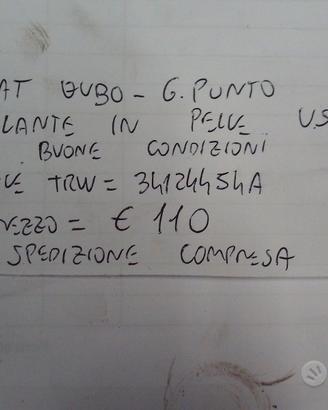 AT QUBO - G. PUNTO
LANTE IN PELLE US
BUONE CONDIZIONI
E TRW = 34124454A
REZZO = € 110
SPEDIZIONE COMPRESA